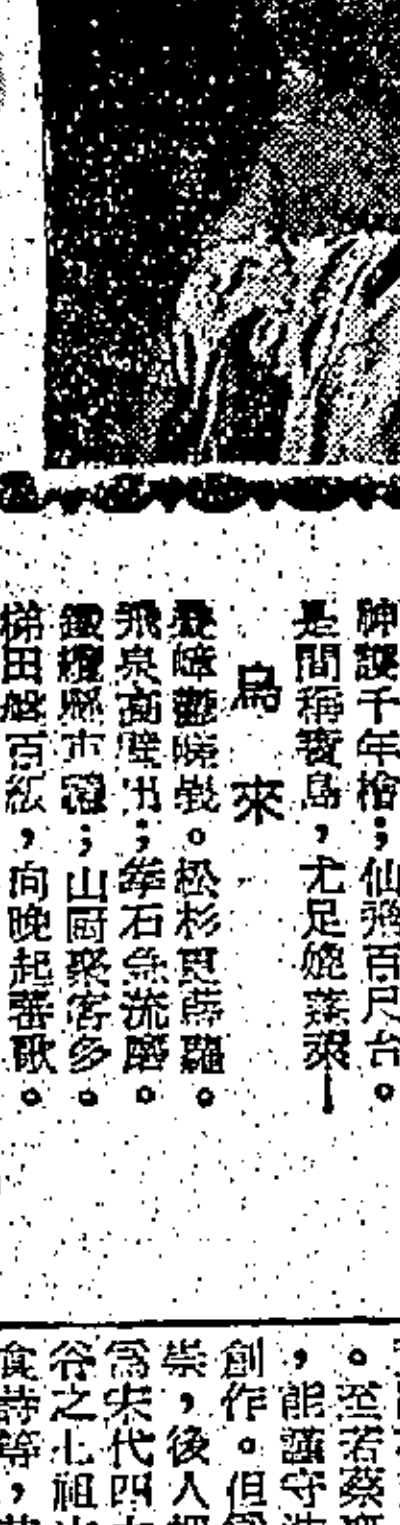 神護千年檜；仙飛百尺台。
是間稱寶島，尤足媲蓬萊—
烏來
疊嶂鬱嵯峩。松杉更蔦蘿。
飛泉高壁出；拳石急流磨。
市；山厨聚客多。
梯田盤百級，向晚起蕃歌。
。至若蔡
，能謹守法
創作。但
崇，後人
為宋代四大
谷之七祖
食詩等，